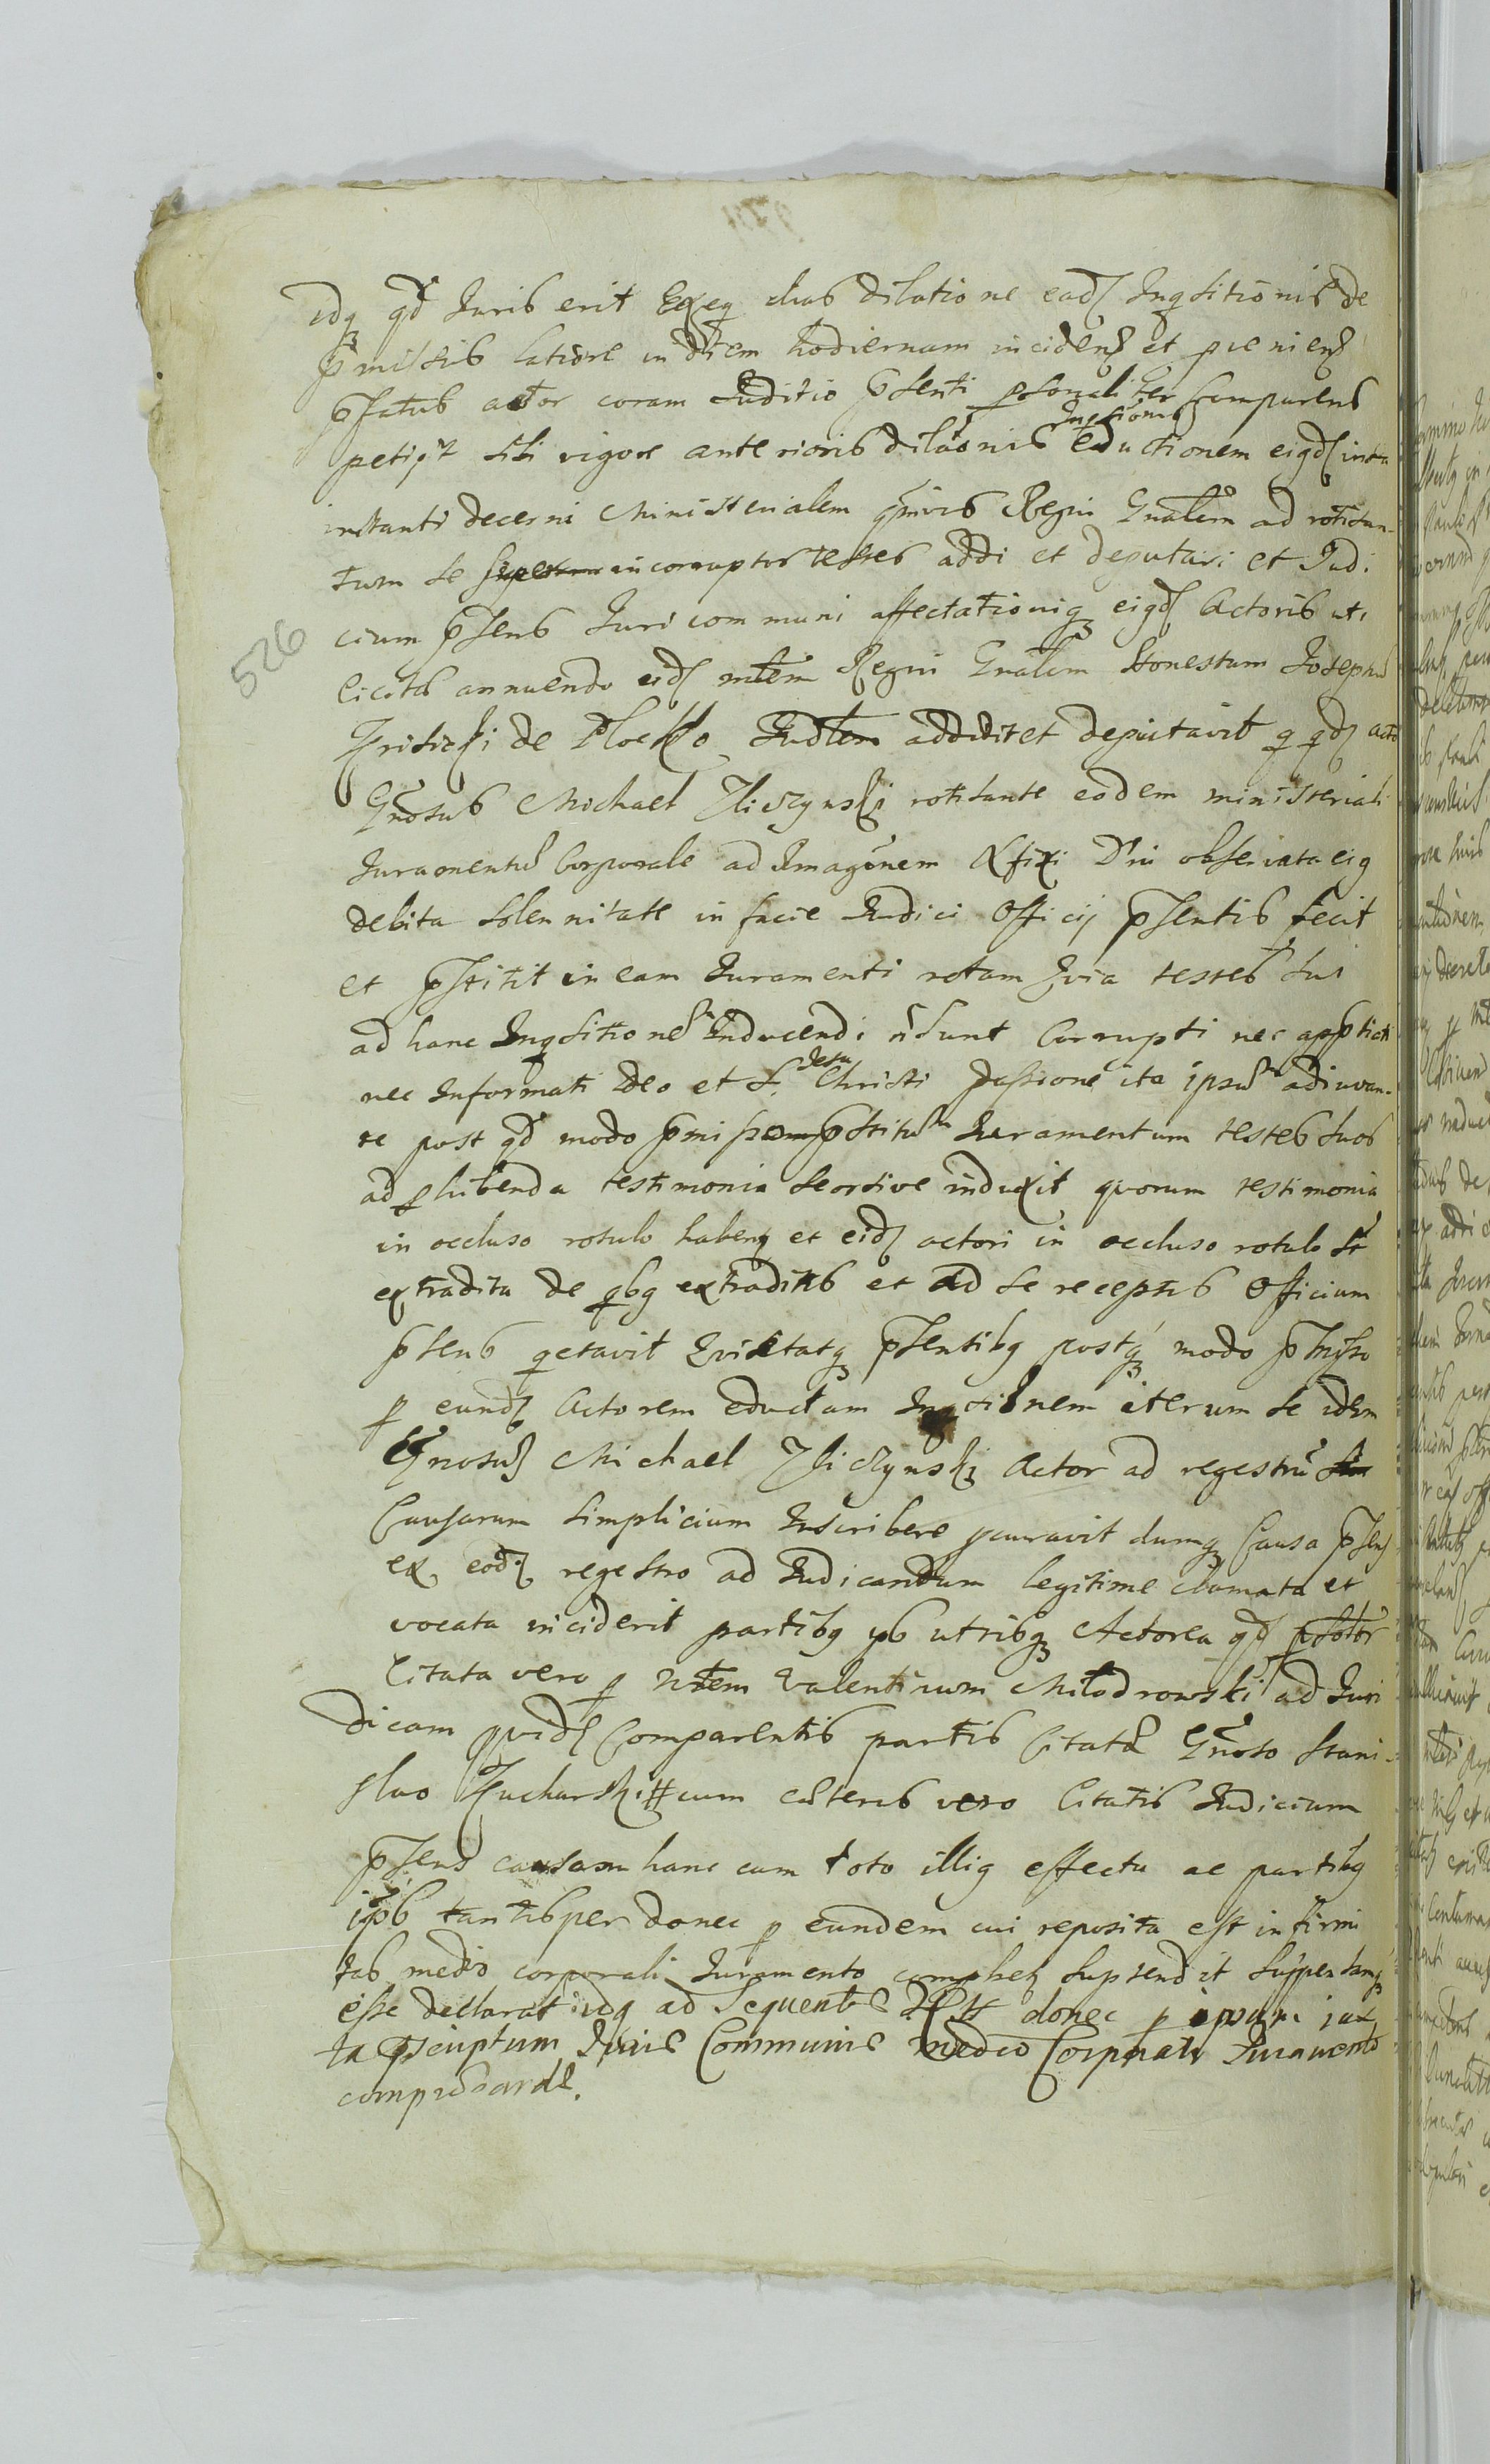 idq qd Juris erit Exeq cuius dilatione ead Inqsitionis de
pmissis latiore in diem hodiernam incidens et pveniens
psatus actor coram Juditio psenti psonaliter Comparens
petiit sibi vigore anterioris dilaonis Inqtionis Eductionem eiqd
instanti decerni Ministerialem Regni Gnalem ad rotisan-
tum se incorruptos testes addi et deputari et Judi
cium psens Juri communi affectationiq eiqd Actoris uti
licitis annuendo eid mtem Regni Gnalem Honestum Josephu
de Plocko addidit et deputavit q qd acto
526
Gnosus Michael Zliczynski rotisante eodem ministeriali
Juramentu Corporale ad Imaginem Xfixi Dni observata eiq
debita solennitate in facie Judici Officij psentis fecit
et pstitit in eam Juramenti rotam Qvia testes sui
ad hanc Inqsitione Inducendi n sunt Corrupti nec
nec Informati Deo et S. Jesu Christi passione ita ipsu adiuvan-
te post qd modo pmisso pstitu Juramentum testes suos
ad phibenda testimonia seorsive induxit quorum testimonia
in occluso rotulo habens et eid actori in occluso rotulo st
extradita de qbq extraditis et ad se receptis Officium
psens qetavit Qvietatq psentibq postq modo pmisso
p eund Actorem eductam Inqtionem iterum se idem
Gnosus Michael Zliczynski Actor ad regestru
Causarum simplicium Inscribere pcuravit dumq Causa psens
ex eod regestro ad Judicandum legitime clamata et
vocata inciderit partibq ipsis utribq Actorea qd psolr
Citata vero p Mtem Valentinum Młodrowski ad Juri
dicam quid Comparentis partis Citata Gnoso Stani
slao Kucharski # cum caeteris vero Citatis Judicium
psens causam hanc cum toto illiq effectu ac partibq
ipsis tantisper donec p eundem cui reposita est infirmi
tas medio corporali Juramento supsendit suspensamq
esse declarat idq ad sequentes donec p ipsum jux
ta pscriptum Juris Communis medio Corporali Juramento